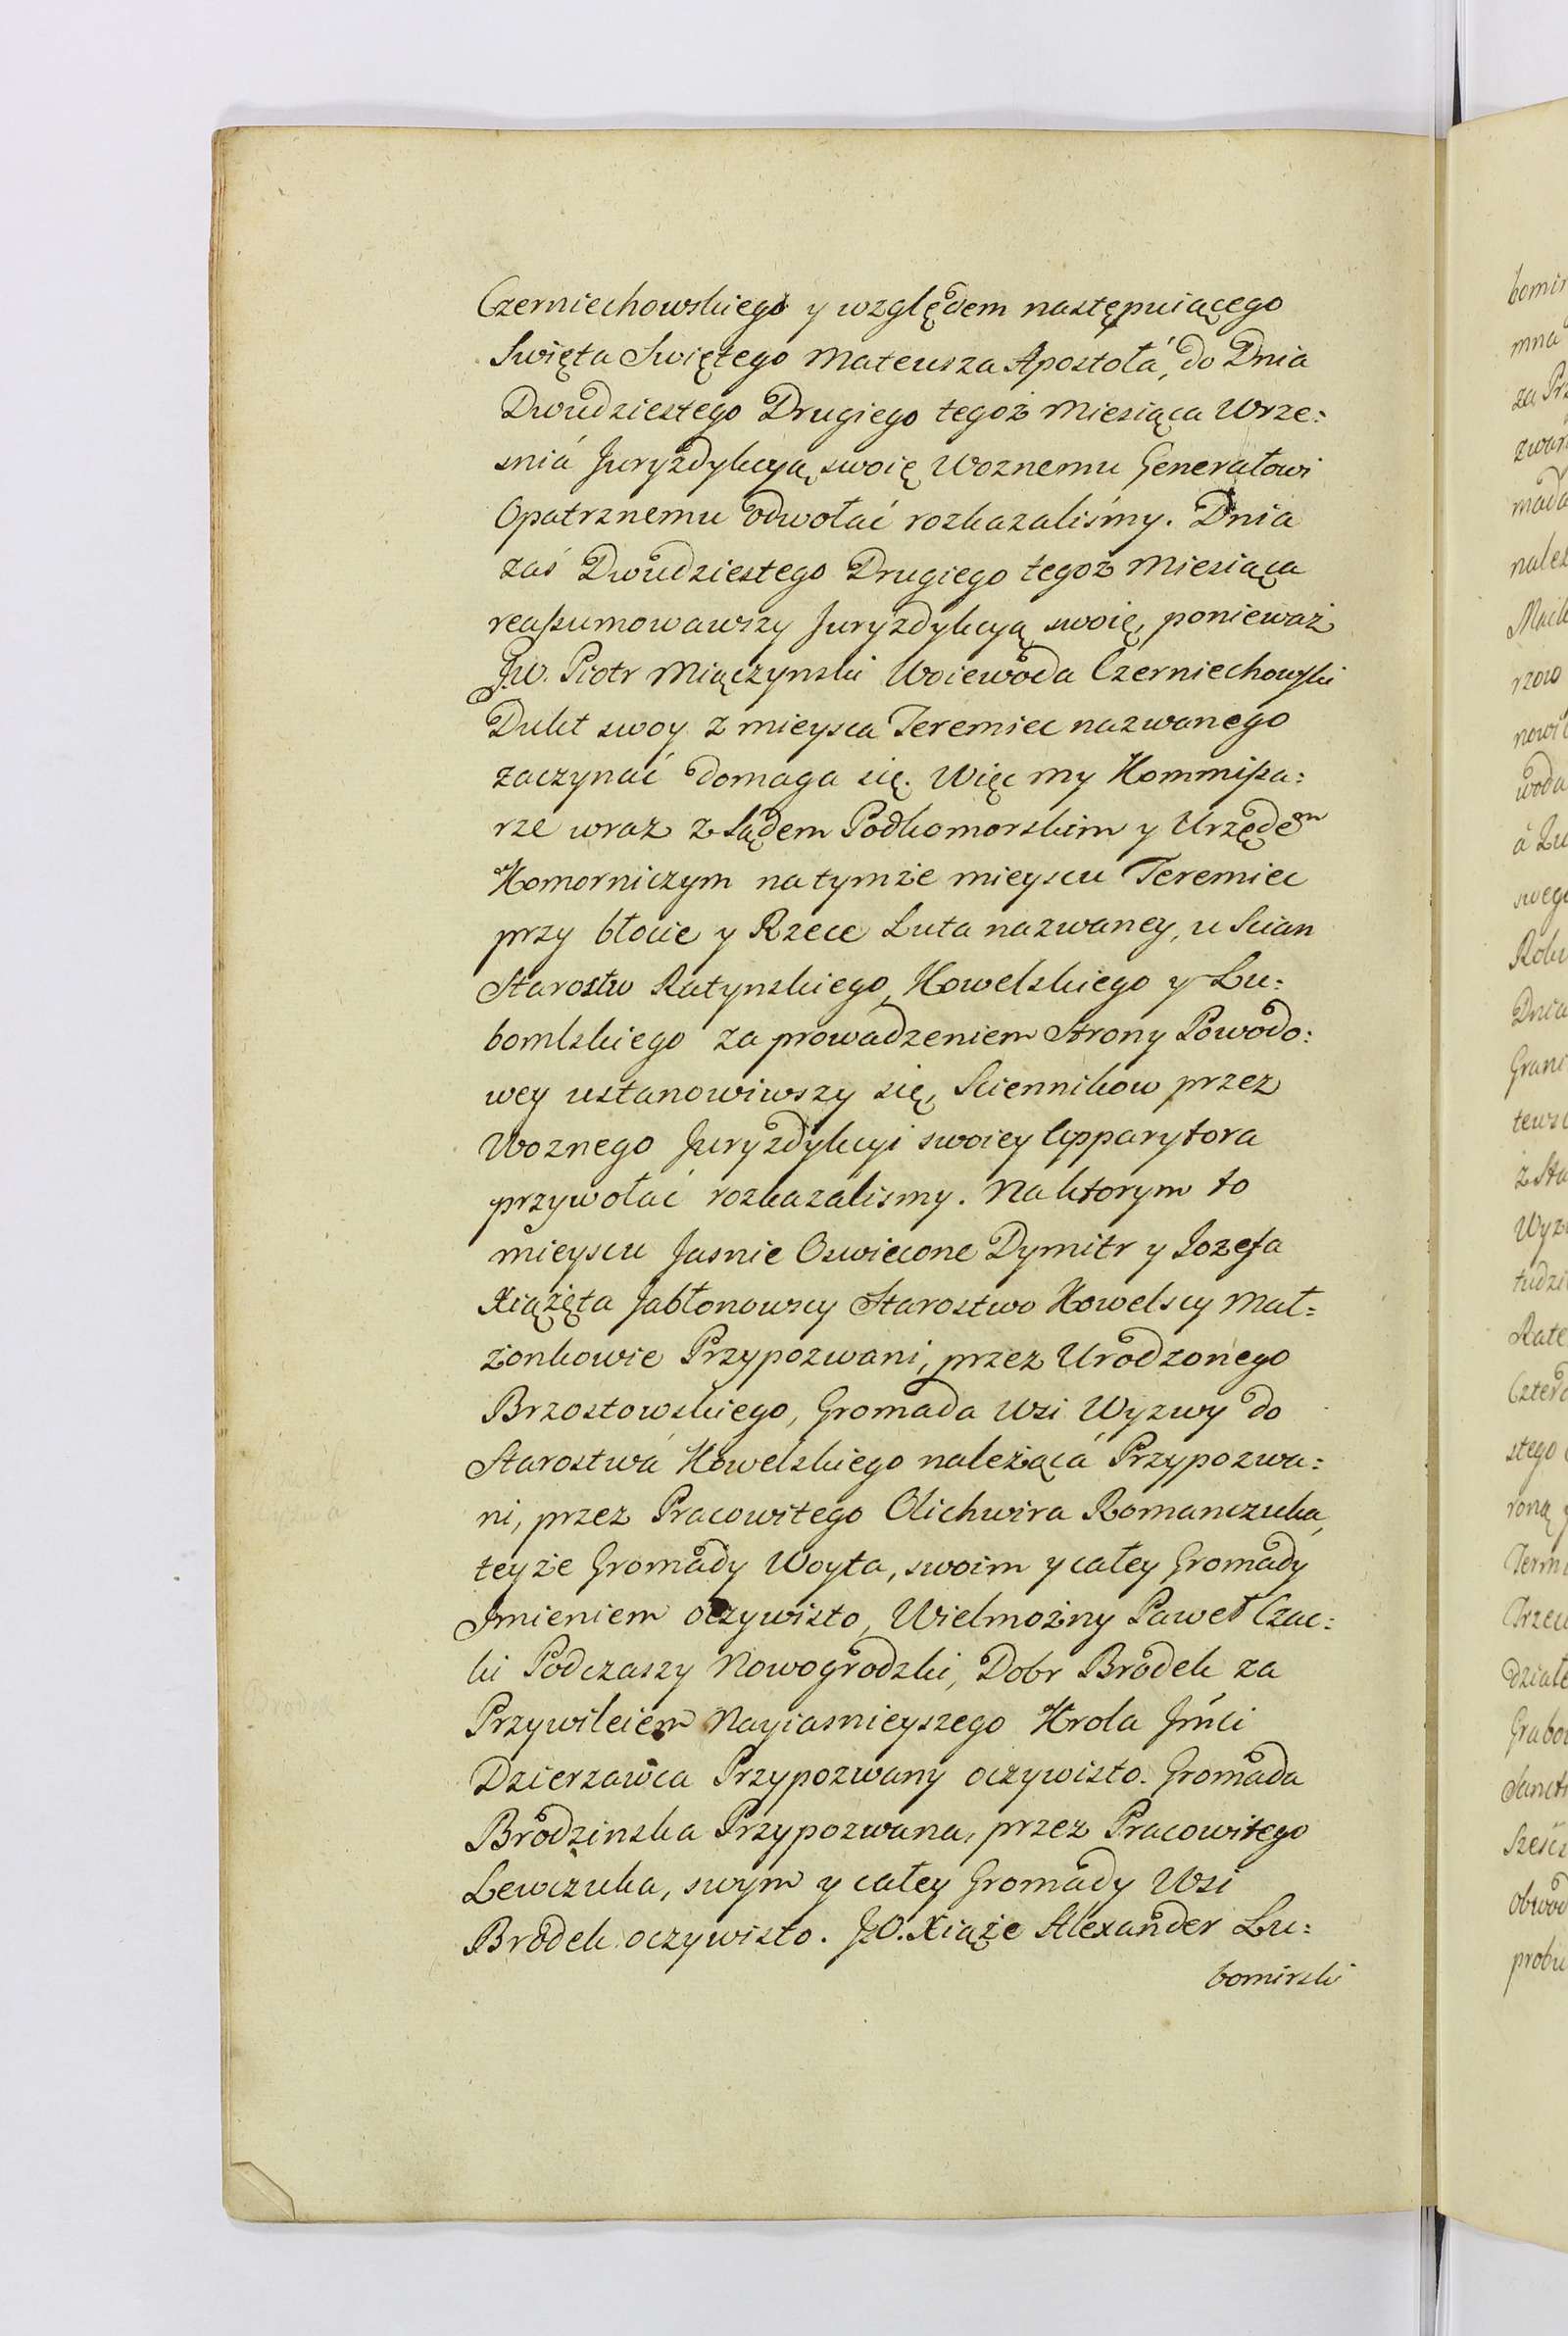 Czerniechowskiego y względem następuiącego
Swięta Swiętego Mateusza Apostołá, do Dnia
Dwudziestego Drugiego tegoż Miesiąca Wrze:
sniá Juryzdykcyą swoię Woznemu Generałowi
Opatrznemu odwołać rozkazaliśmy. Dnia
zaś Dwudziestego Drugiego tegoż Miesiąca
reaßumowawszy Juryzdykcyą swoię, ponieważ
JW. Piotr Miączynski Woiewoda Czerniechowski
Dukt swoy z mieysca Teremiec nazwanego
zaczynać domaga się. Więc my Kommißa:
rze wraz z Sądem Podkomorskim y Urzędem
Komorniczym na tymże mieyscu Teremiec
przy błocie y Rzece Luta nazwaney, u Scian
Starostw Ratynskiego, Kowelskiego y Lu:
bomlskiego za prowadzeniem Strony Powodo:
wey ustanowiwszy się, Sciennikow przez
Woznego Juryzdykcyi swoiey Apparytora
przywołać rozkazalismy. Na ktorym to
mieyscu Jasnie Oswiecone Dymitr y Jozefa
Xiążęta Jabłonowscy Starostwo Kowelscy Mał=
żonkowie Przypozwani, przez Urodzonego
Brzostowskiego, Gromada Wsi Wyzwy do
Starostwá Kowelskiego należącá Przypozwa:
ni, przez Pracowitego Olichwira Romanczuka,
teyże Gromady Woyta, swoim y całey Gromady
Imieniem oczywisto, Wielmożny Paweł Czac:
ki Podczaszy Nowogrodzki, Dobr Brodek za
Przywileiem Nayiasnieyszego Krola Jmći
Dzierzawca Przypozwany oczywisto. Gromada
Brodzinska Przypozwana, przez Pracowitego
Lewczuka, swym y całey Gromady Wsi
Brodek oczywisto. J.O. Xiąże Alexander Lu:
bomirski